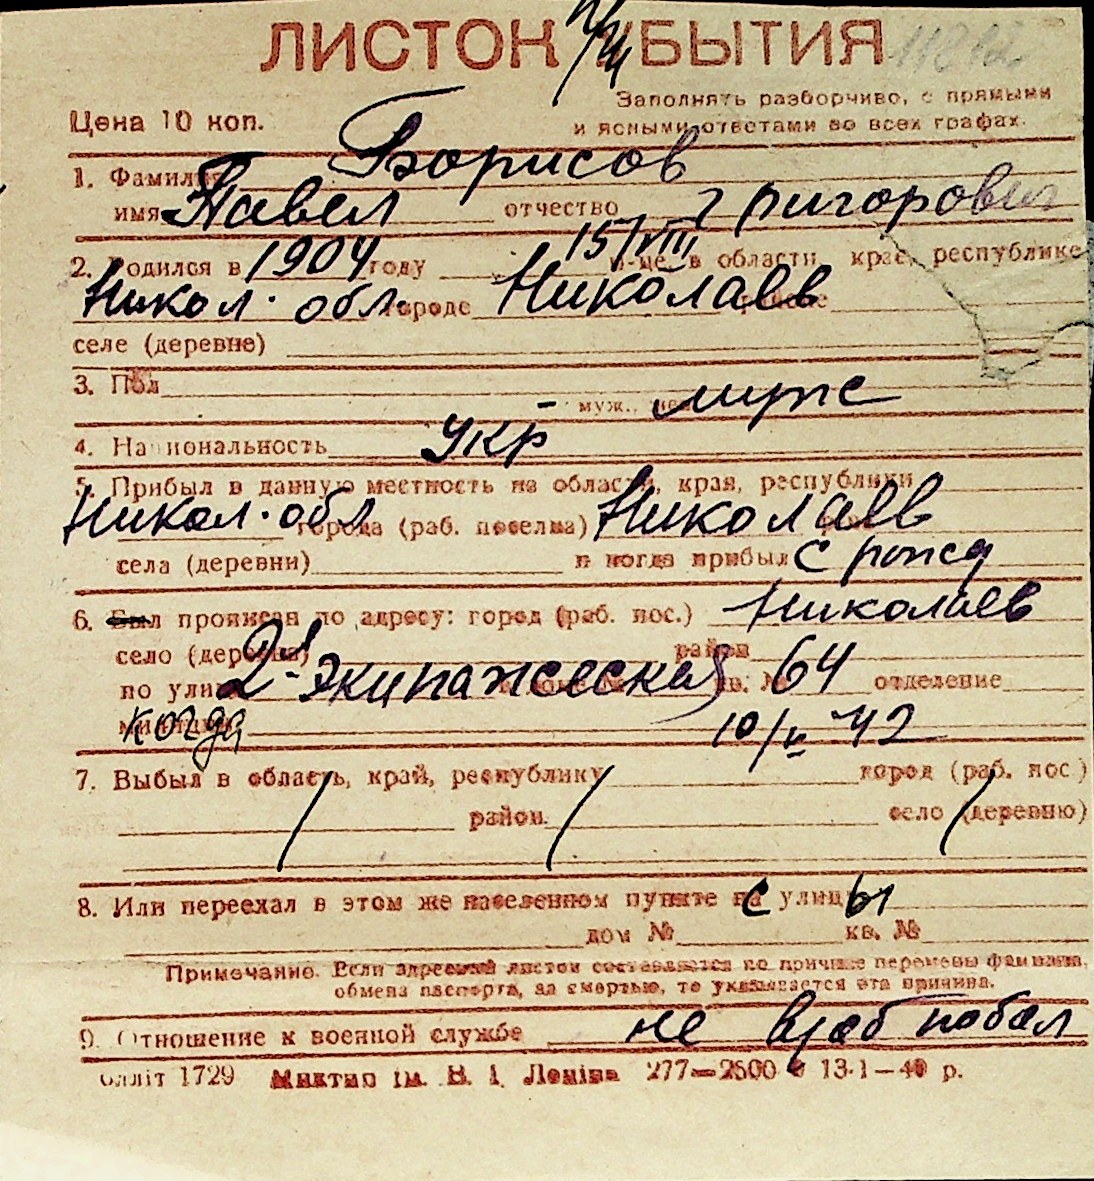 ЛИСТОК УБЫТИЯ
Цена 10 коп.
Заполнять разборчиво, с прямыми
и ясными ответами во всех графах.
1. Фамилия Борисов
имя Павел отчество Григорович
2. Родился в 1904 году 15/VIII м-це, в области, крае, республике
Никол. обл. городе Николаев районе
селе (деревне)
3. Пол муж., муж
4. Национальность Укр
5. Прибыл в данную местность из области, края, республики
Никол. обл города (раб. поселка) Николаев
села (деревни) и когда прибыл с рожд
6. Был прописан по адресу: город (раб. пос.) Николаев
село (деревня) район
по улице 2я Экипажеская кв. № 64 отделение
милиции когда 10/ 42
7. Выбыл в область, край, республику город (раб. пос.)
район село (деревню)
8. Или переехал в этом же населенном пункте с улицы
дом № кв. №
Примечание. Если адресный листок составляется по причине перемены фамилии,
обмена паспорта, за смертью, то указывается эта причина.
9. Отношение к военной службе не
олліт 1729 Миктип ім. В. І. Леніна 277—2500 13-1—40 р.